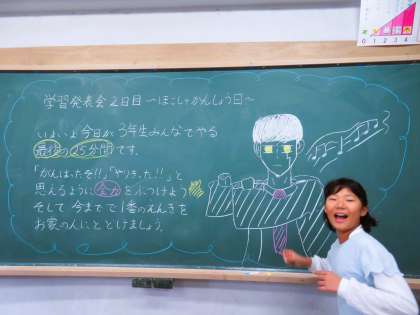 学習発表会2日目 〜ほごしゃかんしょう日〜
いよいよ今日が、3年生みんなでやる
最後の25分間です。
「がんばったぞ!!」「やりきった!!」と
思えるように全力をぶつけよう
そして今までで1番のえんぎを
お家の人にとどけましょう。
0 1 2 3 4